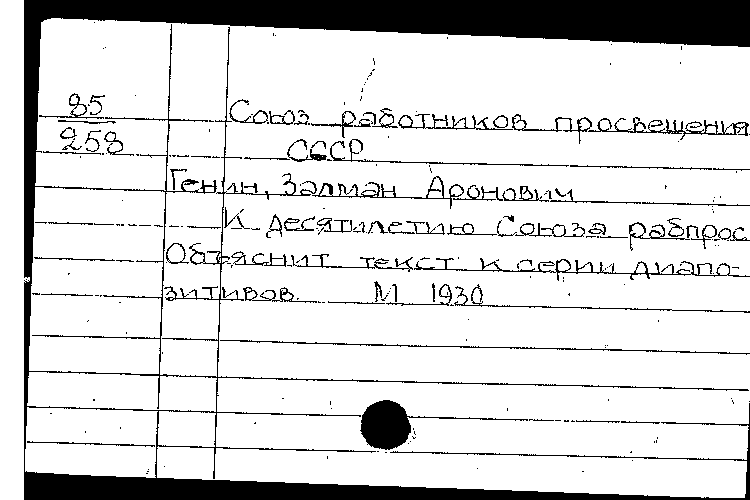 85
258
Союз работников просвещения
СССР
Генин, Залман Аронович
К десятилетию Союза рабпрос
Объяснит текст к серии диапо-
зитивов. М 1930